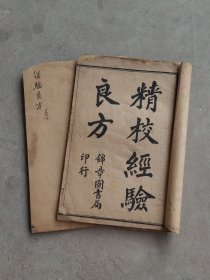 精校經驗
良方
錦章圖書局
印行
經驗良方